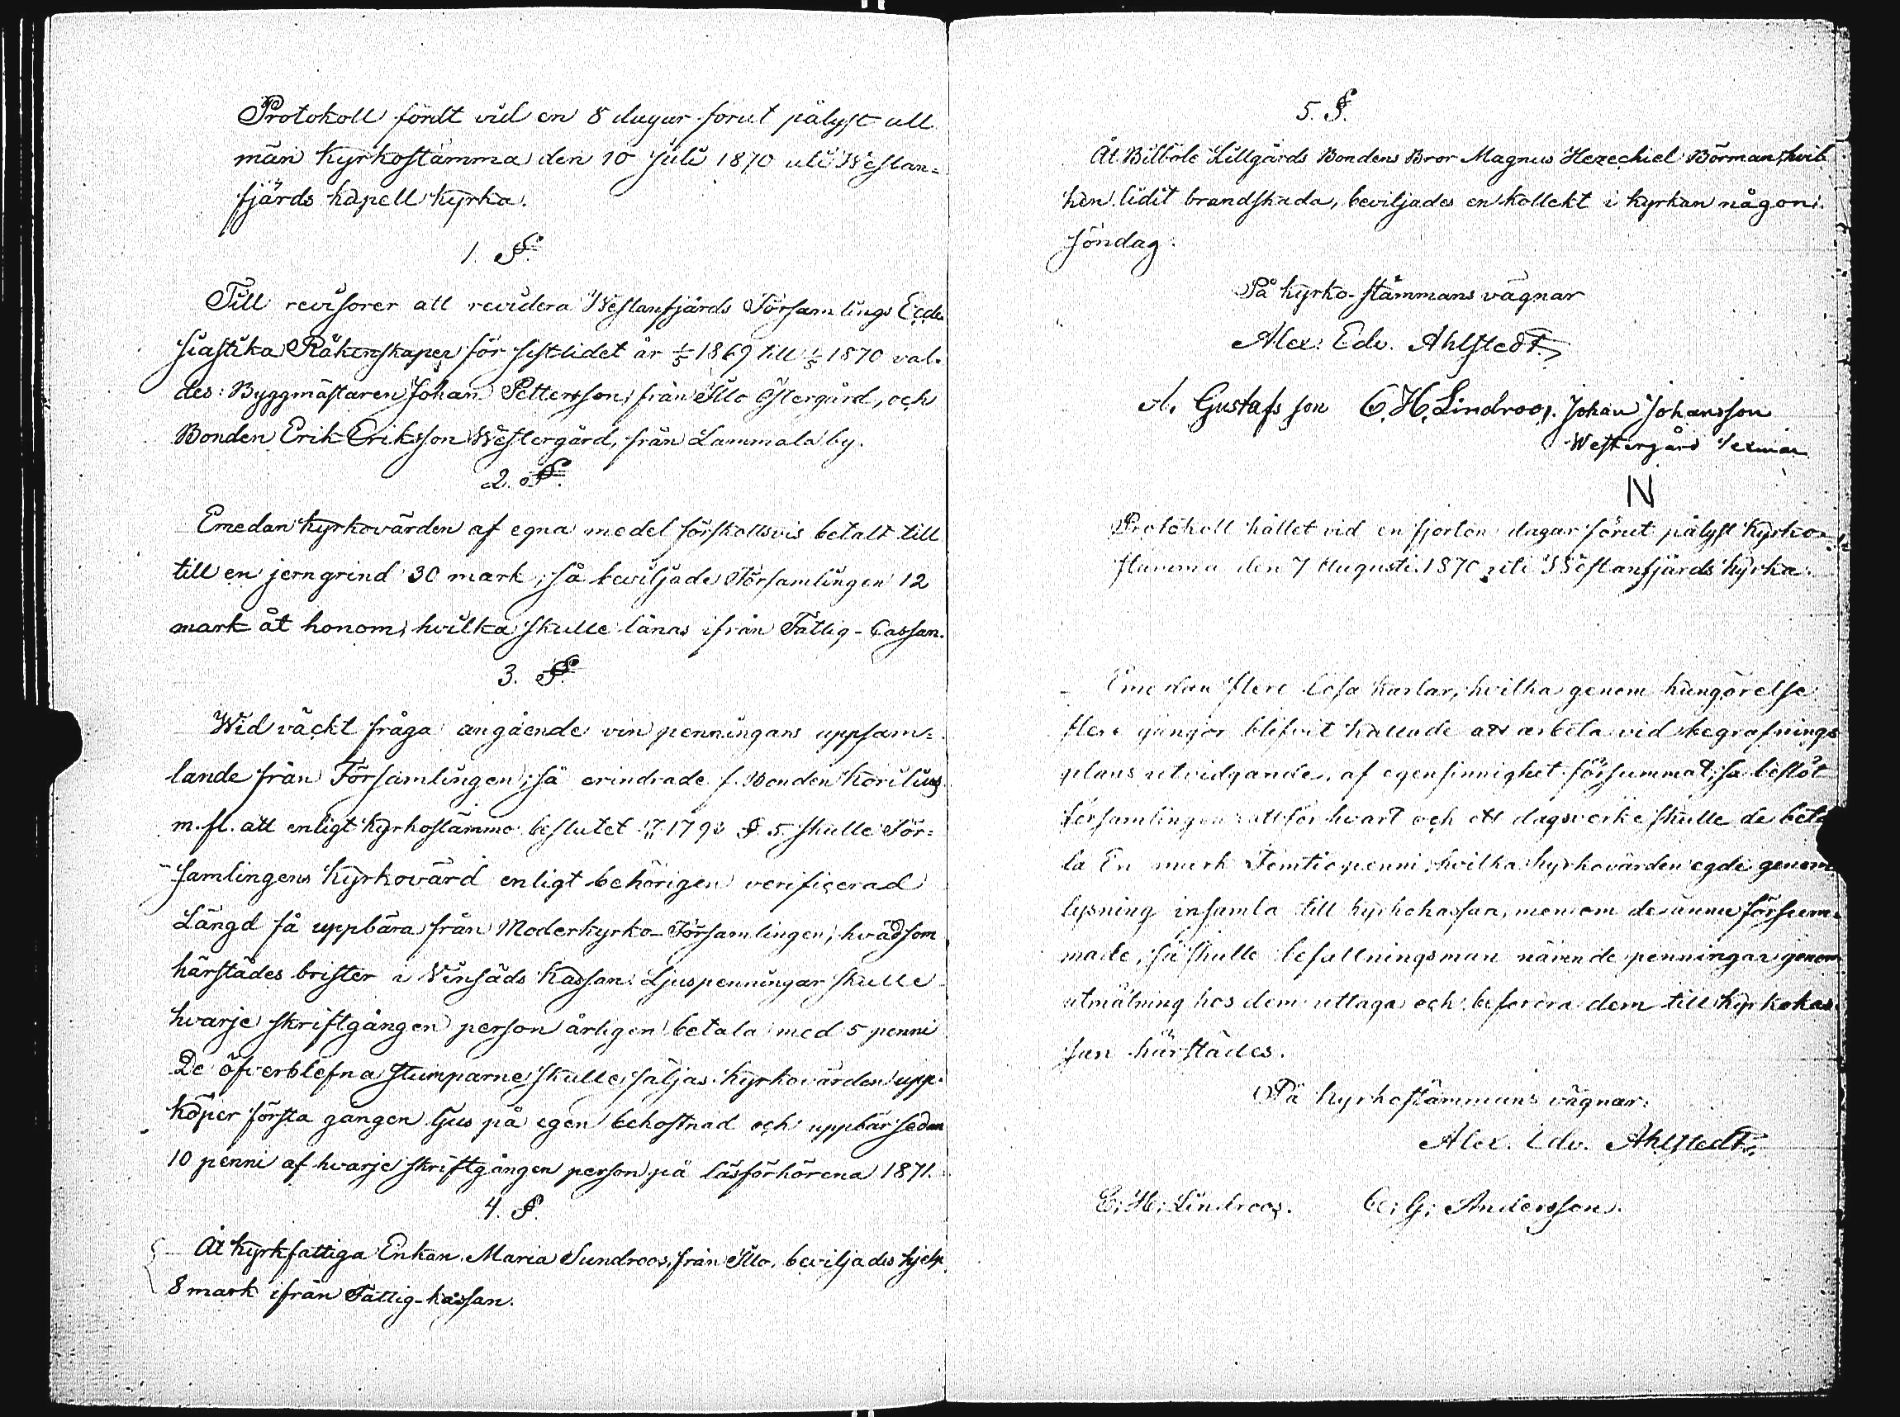 Protokoll fördt vid en 8 dagar förut pålyst all
män kyrkostämma den 10 Juli 1870 uti Westan-
fjärds kapell kyrka.
1. §.
Till revisorer att revidera Westanfjärds Församlings Eccle
siastika Räkenskaper för sistlidet år 1/5 1869 till 1/5 1870 val-
des: Byggmästaren Johan Pettersson från Illo Östergård, och
Bonden Erik Eriksson Westergård, från Lammala by.
2. §.
Emedan kyrkovärden af egna medel förskottsvis betalt till
till en jerngrind 30 mark, så beviljade Församlingen 12
mark åt honom, hvilka skulle lånas ifrån Fattig-Cassan.
3. §.
Wid väckt fråga angående vin penningans uppsam-
lande från Församlingen; så erindrade f. Bonden Korilius
m. fl. att enligt kyrkostämmo beslutet 1793 §. 5. skulle För-
samlingens kyrkovärd enligt behörigen verificerad
Längd få uppbära från Moderkyrko-Församlingen, hvad som
härstädes brister i Vinsäds kassan. Ljuspenningar skulle
hvarje skriftgången person årligen betala med 5 penni
De öfverblefna stumparne skulle säljas. Kyrkovärden upp-
köper första gången ljus på egen bekostnad och uppbär sedan
10 penni af hvarje skriftgången person på läsförhörena 1871.
4. §.
Åt kyrkfattiga Enkan Maria Sundroos, från Illo, beviljades hjelp
8 mark ifrån Fattig-kassan.
5. §.
Åt Bilböle Lillgårds Bondens Bror Magnus Hezechiel Börman, hvil
ken lidit brandskada, beviljades en kollekt i kyrkan någon
söndag.
På kyrko-stämmans vägnar
Alex: Edv. Ahlstedt.
A. Gustafsson C. H. Lindroos. Johan Johansson
Westergård
N
Protokoll hållet vid en fjorton dagar förut pålyst kyrko-
stämma den 7 Augusti 1870 uti Westanfjärds kyrka.
Emedan flere lösa karlar, hvilka genom kungörelse
flere gångor blifvit kallade att arbeta vid begrafnings
plans utvidgande, af egensinnighet försummat; så beslöt
församlingen att för hvart och ett dagsverke skulle de beta
la En mark Femtiopenni, hvilka kyrkovärden egde genom
lysning insamla till kyrkokassan, men om de ännu försum-
made, så skulle befallningsman nämnde penningar genom
utmätning hos dem uttaga och befordra dem till kyrkokas-
san härstädes.
På kyrkostämmans vägnar:
Alex. Edv. Ahlstedt.
C. H. Lindroos. C. G. Andersson.